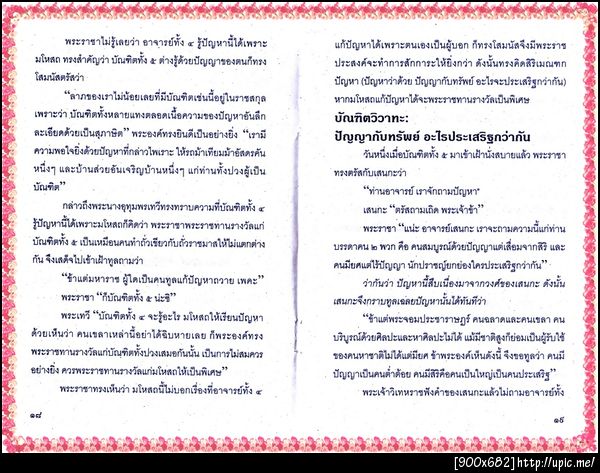 พระราชาไม่รู้เลยว่า อาจารย์ทั้ง ๔ รู้ปัญหานี้ได้เพราะ
มโหสถ ทรงสำคัญว่า บัณฑิตทั้ง ๕ ต่างรู้ด้วยปัญญาของตนก็ทรง
โสมนัสตรัสว่า
“ลาภของเราไม่น้อยเลยที่มีบัณฑิตเช่นนี้อยู่ในราชสกุล
เพราะว่า บัณฑิตทั้งหลายแทงตลอดเนื้อความของปัญหาอันลึก
ละเอียดด้วยเป็นสุภาษิต” พระองค์ทรงยินดีเป็นอย่างยิ่ง “เรามี
ความพอใจยิ่งด้วยปัญหาที่กล่าวไพเราะ ให้รถม้าเทียมม้าอัสดรคัน
หนึ่งๆ และบ้านส่วยอันเจริญบ้านหนึ่งๆ แก่ท่านทั้งปวงผู้เป็น
บัณฑิต”
กล่าวถึงพระนางอุทุมพรเทวีทรงทราบความที่บัณฑิตทั้ง ๔
รู้ปัญหานี้ได้เพราะมโหสถก็คิดว่า พระราชาพระราชทานรางวัลแก่
บัณฑิตทั้ง ๕ เป็นเหมือนคนทำถั่วเขียวกับถั่วราชมาสให้ไม่แตกต่าง
กัน จึงเสด็จไปเข้าเฝ้าทูลถามว่า
“ข้าแต่มหาราช ผู้ใดเป็นคนทูลแก้ปัญหาถวาย เพคะ”
พระราชา “ก็บัณฑิตทั้ง ๕ น่ะซิ”
พระเทวี “บัณฑิตทั้ง ๔ จะรู้อะไร มโหสถให้เรียนปัญหา
ด้วยเห็นว่า คนเขลาเหล่านี้อย่าได้ฉิบหายเลย ก็พระองค์ทรง
พระราชทานรางวัลแก่บัณฑิตทั้งปวงเสมอกันนั้น เป็นการไม่สมควร
อย่างยิ่ง ควรพระราชทานรางวัลแก่มโหสถให้เป็นพิเศษ”
พระราชาทรงเห็นว่า มโหสถนี้ไม่บอกเรื่องที่อาจารย์ทั้ง ๔
๑๘
แก้ปัญหาได้เพราะตนเองเป็นผู้บอก ก็ทรงโสมนัสจึงมีพระราช
ประสงค์จะทำการสักการะให้ยิ่งกว่า ดังนั้นทรงคิดสิริเมณฑก
ปัญหา (ปัญหาว่าด้วย ปัญญากับทรัพย์ อะไรจะประเสริฐกว่ากัน)
หากมโหสถแก้ปัญหาได้จะพระราชทานรางวัลเป็นพิเศษ
บัณฑิตวิวาทะ:
ปัญญากับทรัพย์ อะไรประเสริฐกว่ากัน
วันหนึ่งเมื่อบัณฑิตทั้ง ๕ มาเข้าเฝ้านั่งสบายแล้ว พระราชา
ทรงตรัสกับเสนกะว่า
“ท่านอาจารย์ เราจักถามปัญหา”
เสนกะ “ตรัสถามเถิด พระเจ้าข้า”
พระราชา “แน่ะ อาจารย์เสนกะ เราจะถามความนี้แก่ท่าน
บรรดาคน ๒ พวก คือ คนสมบูรณ์ด้วยปัญญาแต่เสื่อมจากสิริ และ
คนมียศแต่ไร้ปัญญา นักปราชญ์ยกย่องใครประเสริฐกว่ากัน”
ว่ากันว่า ปัญหานี้สืบเนื่องมาจากวงศ์ของเสนกะ ดังนั้น
เสนกะจึงกราบทูลเฉลยปัญหานั้นได้ทันทีว่า
“ข้าแต่พระจอมประชาราษฎร์ คนฉลาดและคนเขลา คน
บริบูรณ์ด้วยศิลปะและหาศิลปะไม่ได้ แม้มีชาติสูงก็ย่อมเป็นผู้รับใช้
ของคนหาชาติไม่ได้แต่มียศ ข้าพระองค์เห็นดังนี้ จึงขอทูลว่า คนมี
ปัญญาเป็นคนต่ำต้อย คนมีสิริคือคนเป็นใหญ่เป็นคนประเสริฐ”
พระเจ้าวิเทหราชฟังคำของเสนกะแล้วไม่ถามอาจารย์ทั้ง
๑๙
[900x682]http://upic.me/